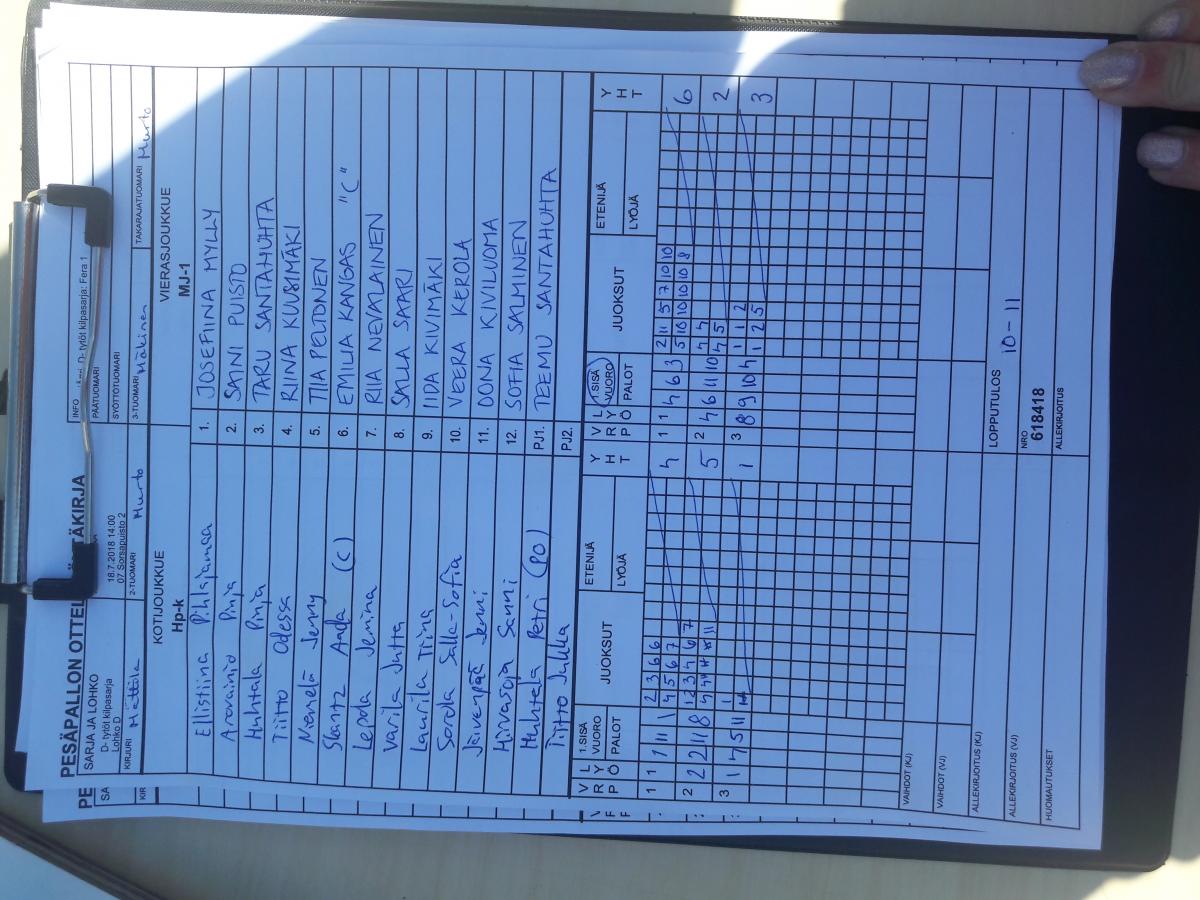 PESÄPALLON OTTEL TÄKIRJA
SARJA JA LOHKO
D- tytöt kilpasarja
Lohko D
18.7.2018 14.00
07 Sorsapuisto 2
INFO D- tytöt kilpasarja: Fera 1
PÄÄTUOMARI
SYÖTTÖTUOMARI
KIRJURI Mattila
2-TUOMARI Murto
3-TUOMARI Mäkinen
TAKARAJATUOMARI Murto
KOTIJOUKKUE VIERASJOUKKUE
Hp-k MJ-1
Ellistiina Pihlajamaa 1. JOSEFIINA MYLLY
Arovainio Pinja 2. SAINI PUISTO
Huhtala Pinja 3. TARU SANTAHUHTA
Tiitto Odessa 4. RIINA KUUSIMÄKI
Niemelä Jenny 5. TIIA PELTONEN
Skantz Aada (C) 6. EMILIA KANGAS "C"
Lepola Jemina 7. RIIA NEVALAINEN
Varila Jutta 8. SALLA SAARI
Laurila Tiina 9. IIDA KIVIMÄKI
Sorola Salla-Sofia 10. VEERA KEROLA
Järvenpää Jenni 11. OONA KIVILUOMA
Hiivasoja Sanni 12. SOFIA SALMINEN
Huhtela Petri (PO) PJ1. TEEMU SANTAHUHTA
Tiitto Jukka PJ2.
V R P L Y Ö 1.SISÄ VUORO PALOT JUOKSUT ETENIJÄ LYÖJÄ Y H T V R P L Y Ö 1.SISÄ VUORO PALOT JUOKSUT ETENIJÄ LYÖJÄ Y H T
1 1 1 11 1 2 3 6 6 4 1 1 4 6 3 2 11 5 7 10 10 6
4 5 6 7 5 10 10 10 10 8
2 2 2 11 8 1 2 3 4 6 7 5 2 4 6 11 10 4 4 2
4 5
3 1 4 5 11 1 1 3 8 9 10 4 1 1 2 3
1 2 5
VAIHDOT (KJ)
VAIHDOT (VJ)
ALLEKIRJOITUS (KJ) LOPPUTULOS 10-11
ALLEKIRJOITUS (VJ) NRO 618418
HUOMAUTUKSET ALLEKIRJOITUS